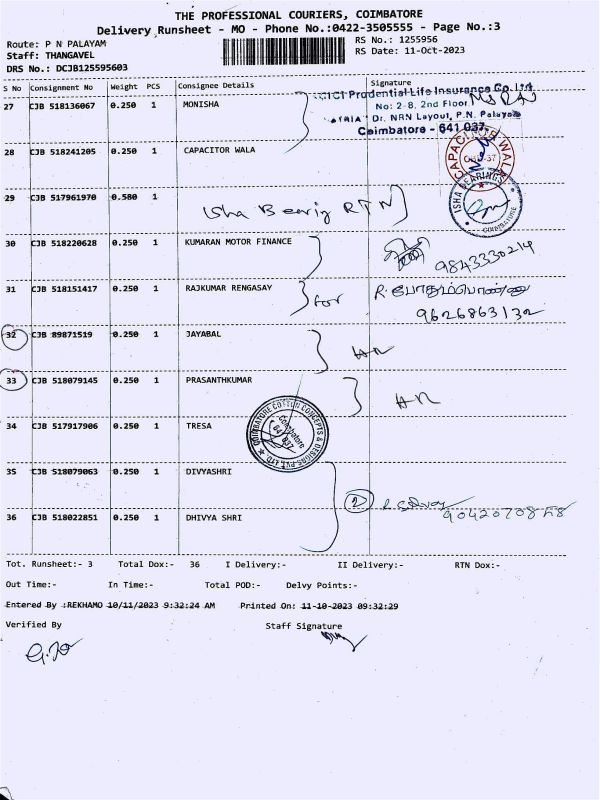 THE PROFESSIONAL COURIERS, COIMBATORE
Delivery Runsheet - MO - Phone No.:0422-3505555 - Page No.:3
Route: P N PALAYAM
RS No.: 1255956
Staff: THANGAVEL
RS Date: 11-Oct-2023
DRS No.: DCJB125595603
S No Consignment No Weight PCS Consignee Details Signature
ICICI Prudential Life Insurance Co. Ltd
No: 2-B, 2nd Floor
Dr. NRN Layout, P.N. Palayam
Coimbatore - 641 037.
27 CJB 518136067 0.250 1 MONISHA
28 CJB 518241205 0.250 1 CAPACITOR WALA
CAPACITOR WALA
29 CJB 517961970 0.580 1 Isha Bearig RTN
ISHA BEARINGS
COIMBATORE
30 CJB 518220628 0.250 1 KUMARAN MOTOR FINANCE
9843330214
31 CJB 518151417 0.250 1 RAJKUMAR RENGASAY for
9626863132
32 CJB 89871519 0.250 1 JAYABAL
33 CJB 518079145 0.250 1 PRASANTHKUMAR
34 CJB 517917906 0.250 1 TRESA
COIMBATORE COTTON CONCEPTS & DESIGNS PVT. LTD.
Coimbatore
641 037
35 CJB 518079063 0.250 1 DIVYASHRI
2
36 CJB 518022851 0.250 1 DHIVYA SHRI
Tot. Runsheet:- 3 Total Dox:- 36 I Delivery:- II Delivery:- RTN Dox:-
Out Time:- In Time:- Total POD:- Delvy Points:-
Entered By :REKHAMO 10/11/2023 9:32:24 AM Printed On: 11-10-2023 09:32:29
Verified By Staff Signature